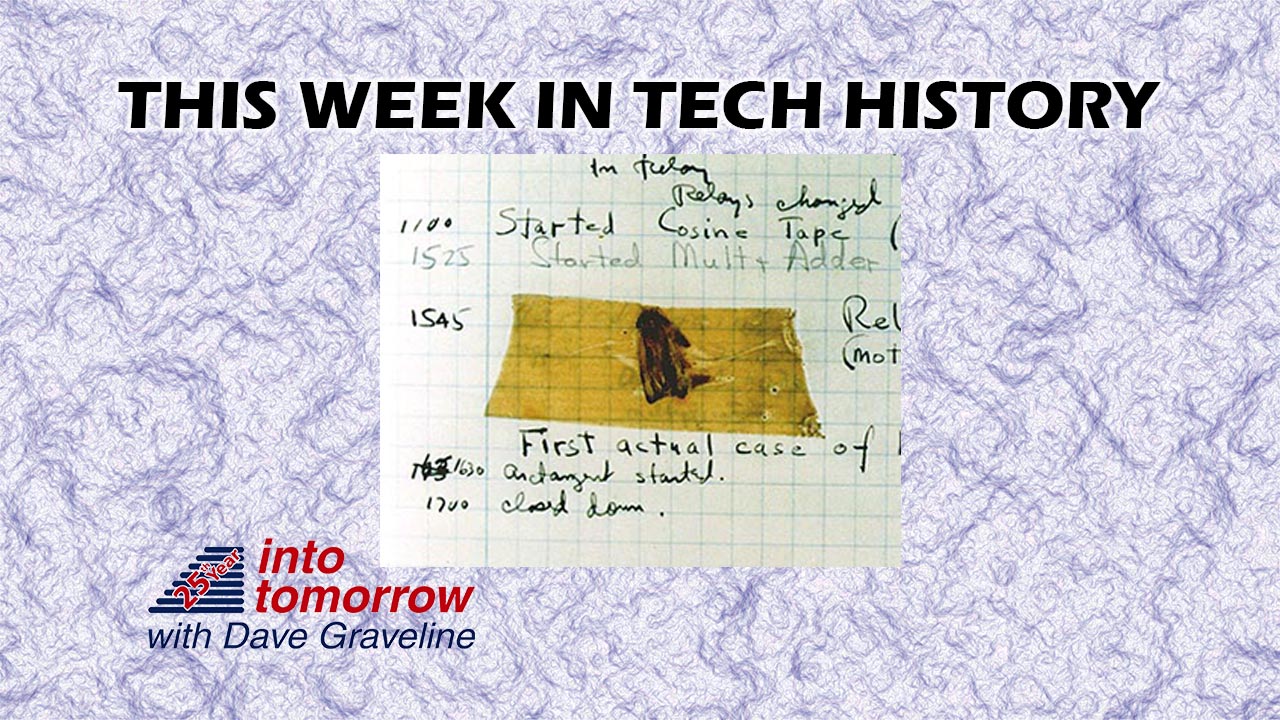 THIS WEEK IN TECH HISTORY
In Relay
Relays changed
1100 Started Cosine Tape (
1525 Started Mult + Adder
1545 Rel
(mot
First actual case of
1630 arctangent started.
1700 closed down.
25th Year
into
tomorrow
with Dave Graveline